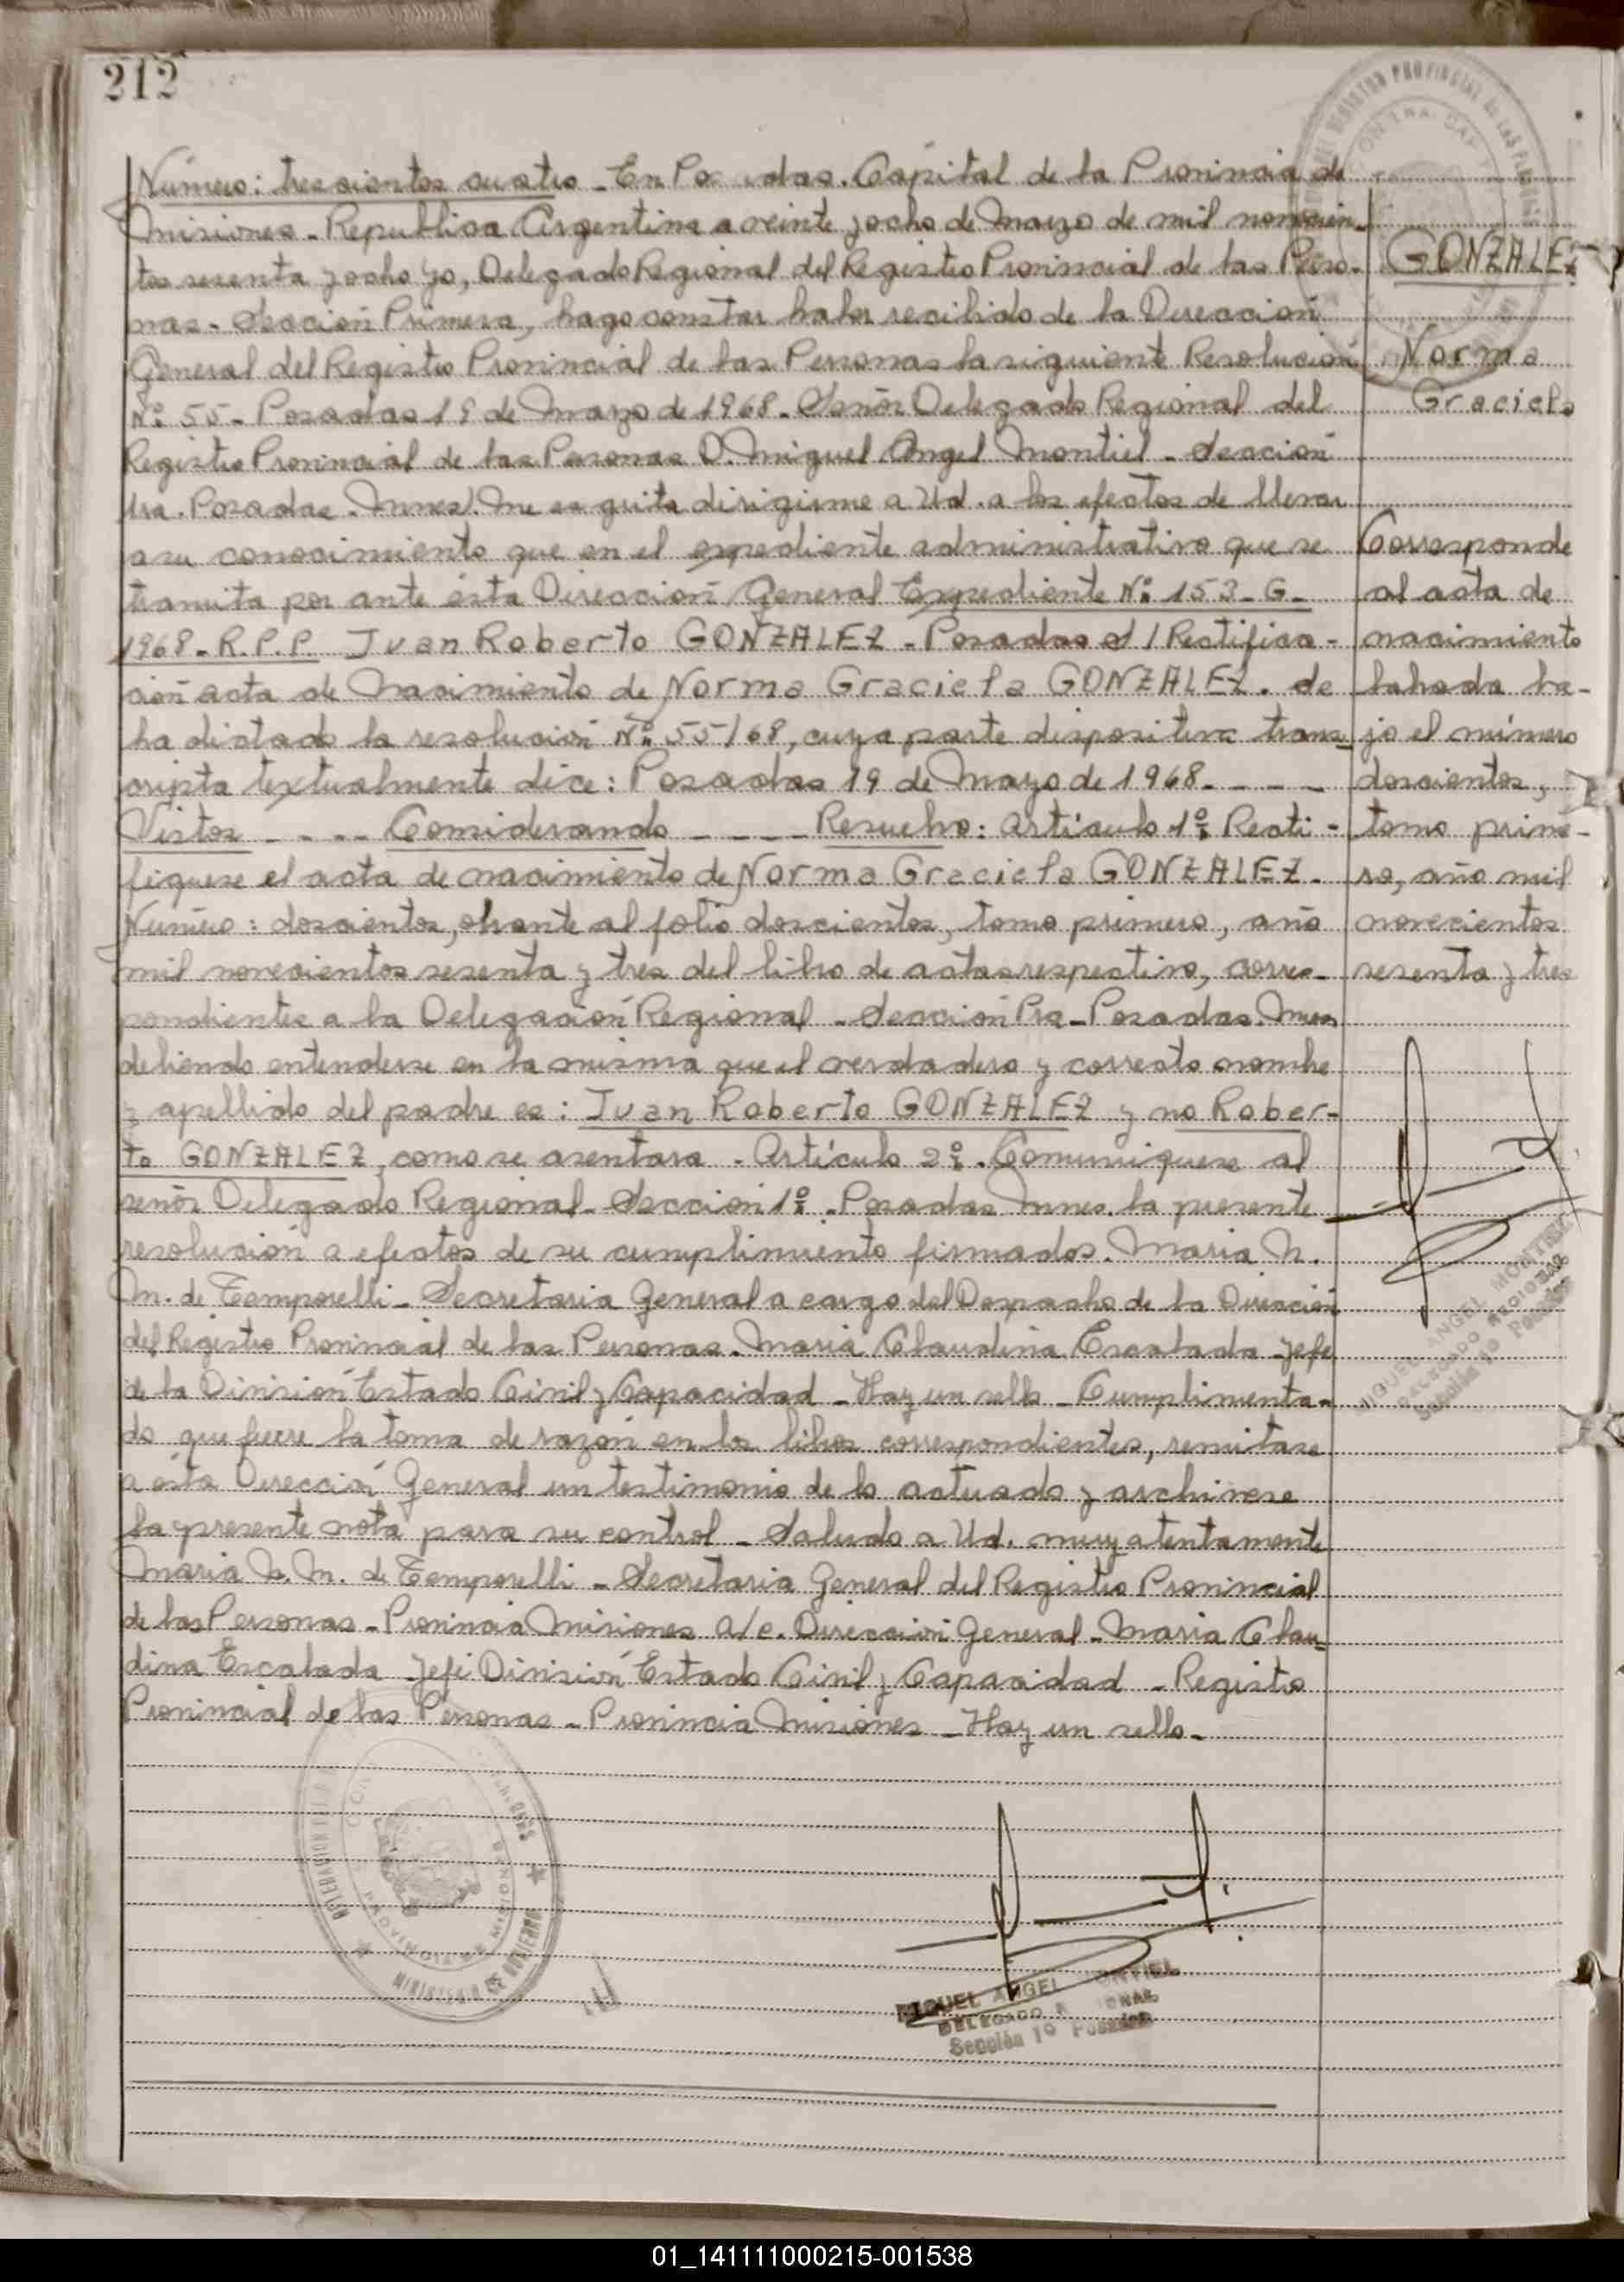 212
Número: trescientos cuatro - En Posadas. Capital de la Provincia de
Misiones - Republica Argentina a veinte y ocho de Marzo de mil novecien-
tos sesenta y ocho yo, Delegado Regional del Registro Provincial de las Perso-
nas - Sección Primera, hago constar haber recibido de la Dirección
General del Registro Provincial de las Personas la siguiente Resolución
Nº 55 - Posadas 19 de Marzo de 1968 - Señor Delegado Regional del
Registro Provincial de las Personas D. Miguel Angel Montiel - Sección
1ra. Posadas. Mnes). Me es grito dirigirme a Ud. a los efectos de llevar
a su conocimiento que en el expediente administrativo que se
tramita por ante ésta Dirección General Expediente Nº 153-G-
1968-R.P.P. Juan Roberto GONZALEZ - Posadas S/Rectifica-
ción acta de Nacimiento de Norma Graciela GONZALEZ. de
ha dictado la resolución Nº 55/68, cuya parte dispositiva trans-
cripta textualmente dice: Posadas 19 de Marzo de 1968 - - - -
Vistos - - - - Considerando - - - - Resuelvo: Artículo 1º Recti-
fiquese el acta de nacimiento de Norma Graciela GONZALEZ -
Número: doscientos, obrante al folio doscientos, tomo primero, año
mil novecientos sesenta y tres del libro de actas respectivo, corres-
pondientes a la Delegación Regional - Sección Pra - Posadas. Mnes
debiendo entenderse en la misma que el verdadero y correcto nombre
y apellido del padre es: Juan Roberto GONZALEZ y no Rober-
to GONZALEZ, como se asentara - Artículo 2º. Comuniquese al
señor Delegado Regional - Sección 1º - Posadas Mnes. la presente
resolución a efectos de su cumplimiento firmados. Maria N.
M. de Temporelli - Secretaria General a cargo del Despacho de la Dirección
del Registro Provincial de las Personas - Maria Claudina Escalada - Jefe
de la División Estado Civil y Capacidad - Hay un sello - Cumplimenta-
do que fuere la toma de razón en los libros correspondientes, remitase
a ésta Dirección General un testimonio de lo actuado y archivese
la presente nota para su control - Saludo a Ud. muy atentamente
Maria N. M. de Temporelli - Secretaria General del Registro Provincial
de las Personas - Provincia Misiones a/c. Dirección General - Maria Clau-
dina Escalada Jefe División Estado Civil y Capacidad - Registro
Provincial de las Personas - Provincia Misiones - Hay un sello -
GONZALEZ
Norma
Graciela
Corresponde
al acta de
nacimiento
labrada ba-
jo el número
doscientos,
tomo prime-
ro, año mil
novecientos
sesenta y tres
MIGUEL ANGEL MONTIEL
DELEGADO REGIONAL
Sección 1º Posadas
MIGUEL ANGEL MONTIEL
DELEGADO REGIONAL
Sección 1º Posadas
01_141111000215-001538